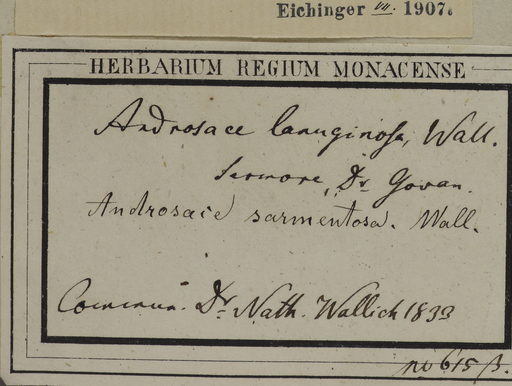 Eichinger VII. 1907.
HERBARIUM REGIUM MONACENSE
Androsace lanuginosa, Wall.
Sermore, Dr. Govan.
Androsace sarmentosa. Wall.
Commun. Dr. Nath. Wallich 1833
no 615 β.